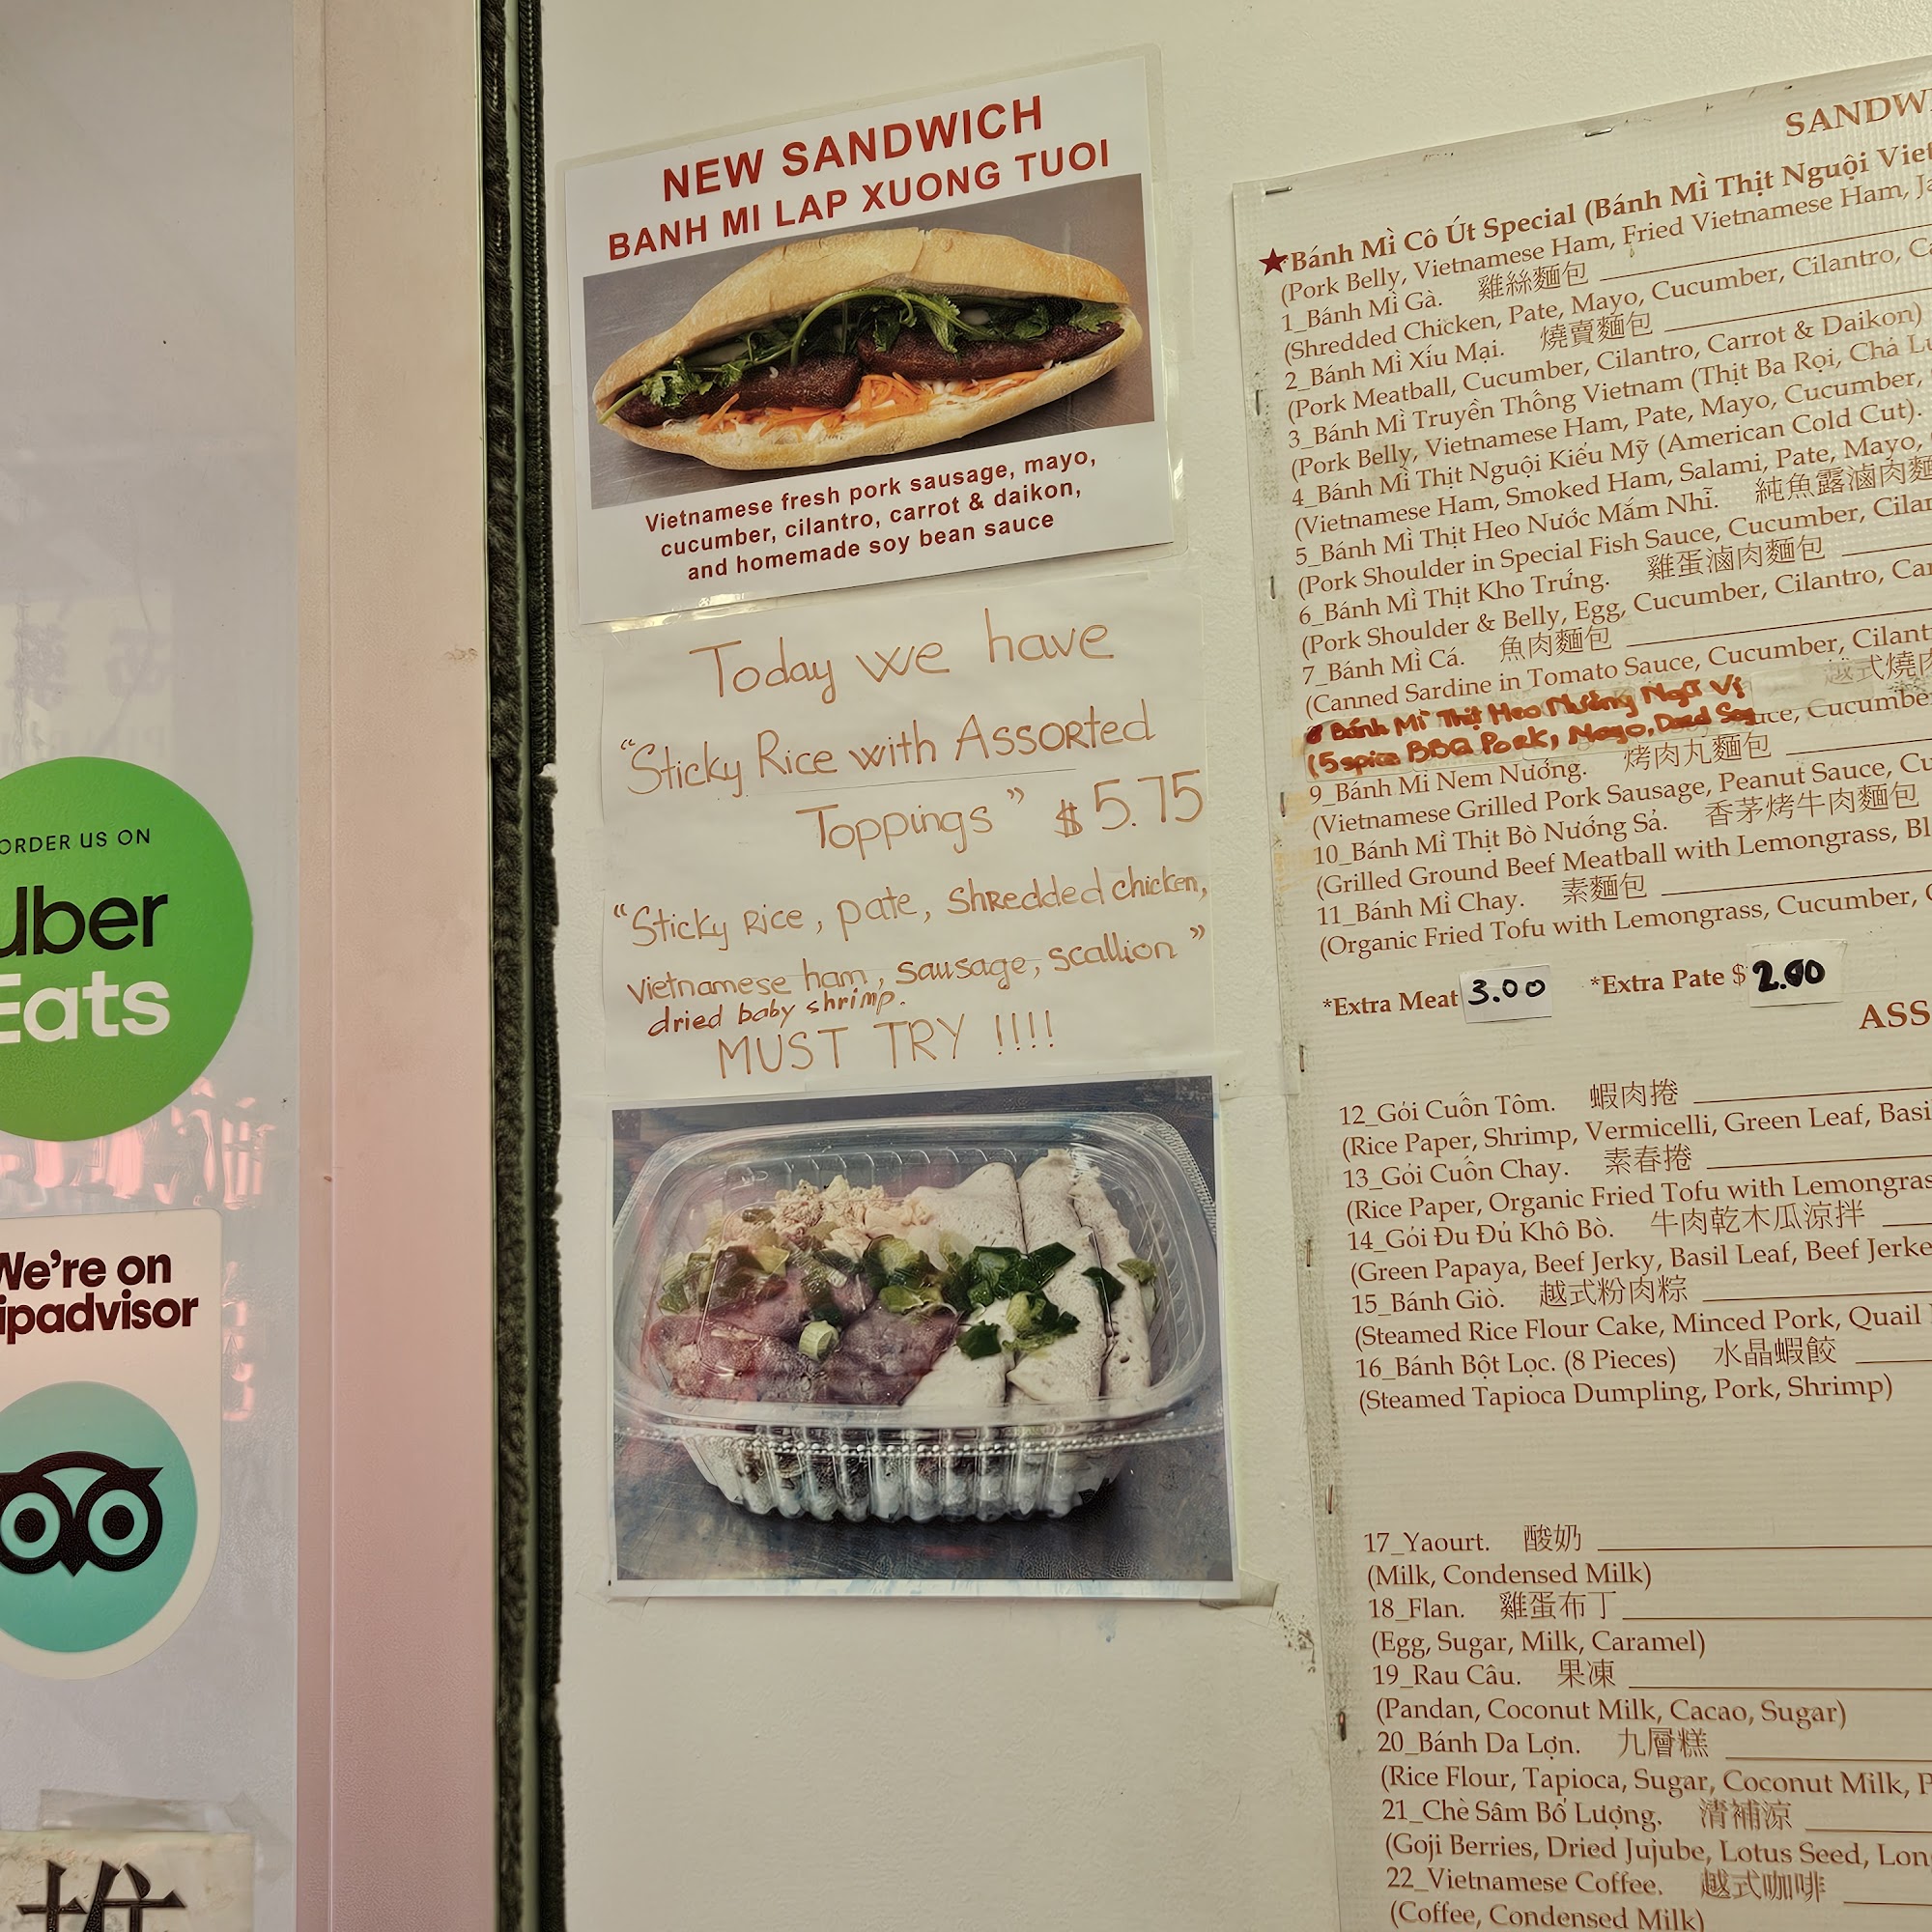 NEW SANDWICH
BANH MI LAP XUONG TUOI
Vietnamese fresh pork sausage, mayo,
cucumber, cilantro, carrot & daikon,
and homemade soy bean sauce
Today we have
“Sticky Rice with Assorted
Toppings” $5.75
“Sticky Rice, pate, shredded chicken,
vietnamese ham, sausage, scallion”
dried baby shrimp.
MUST TRY !!!!
ORDER US ON
Uber
Eats
We're on
推
★Bánh Mì Cô Út Special (Bánh Mì Thịt Nguội
(Pork Belly, Vietnamese Ham, Fried Vietnamese Ham,
1_Bánh Mì Gà. 雞絲麵包
(Shredded Chicken, Pate, Mayo, Cucumber, Cilantro,
2_Bánh Mì Xíu Mại. 燒賣麵包
(Pork Meatball, Cucumber, Cilantro, Carrot & Daikon)
3_Bánh Mì Truyền Thống Vietnam (Thịt Ba Rọi, Chả
(Pork Belly, Vietnamese Ham, Pate, Mayo, Cucumber,
4_Bánh Mì Thịt Nguội Kiểu Mỹ (American Cold Cut).
(Vietnamese Ham, Smoked Ham, Salami, Pate, Mayo,
5_Bánh Mì Thịt Heo Nước Mắm Nhĩ. 純魚露滷肉
(Pork Shoulder in Special Fish Sauce, Cucumber,
6_Bánh Mì Thịt Kho Trứng. 雞蛋滷肉麵包
(Pork Shoulder & Belly, Egg, Cucumber, Cilantro,
7_Bánh Mì Cá. 魚肉麵包
(Canned Sardine in Tomato Sauce, Cucumber,
8 Bánh Mì Thịt Heo Nướng Ngũ Vị 越式燒
(5 spice BBQ Pork, Mayo,
9_Bánh Mì Nem Nướng. 烤肉丸麵包
(Vietnamese Grilled Pork Sausage, Peanut Sauce,
10_Bánh Mì Thịt Bò Nướng Sả. 香茅烤牛肉麵包
(Grilled Ground Beef Meatball with Lemongrass,
11_Bánh Mì Chay. 素麵包
(Organic Fried Tofu with Lemongrass, Cucumber,
*Extra Meat 3.00 *Extra Pate $ 2.00
12_Gỏi Cuốn Tôm. 蝦肉捲
(Rice Paper, Shrimp, Vermicelli, Green Leaf,
13_Gỏi Cuốn Chay. 素春捲
(Rice Paper, Organic Fried Tofu with
14_Gỏi Đu Đủ Khô Bò. 牛肉乾木瓜涼拌
(Green Papaya, Beef Jerky, Basil Leaf, Beef
15_Bánh Giò. 越式粉肉粽
(Steamed Rice Flour Cake, Minced Pork, Quail
16_Bánh Bột Lọc. (8 Pieces) 水晶蝦餃
(Steamed Tapioca Dumpling, Pork, Shrimp)
17_Yaourt. 酸奶
(Milk, Condensed Milk)
18_Flan. 雞蛋布丁
(Egg, Sugar, Milk, Caramel)
19_Rau Câu. 果凍
(Pandan, Coconut Milk, Cacao, Sugar)
20_Bánh Da Lợn. 九層糕
(Rice Flour, Tapioca, Sugar, Coconut Milk,
21_Chè Sâm Bổ Lượng. 清補涼
(Goji Berries, Dried Jujube, Lotus Seed,
22_Vietnamese Coffee. 越式咖啡
(Coffee, Condensed Milk)